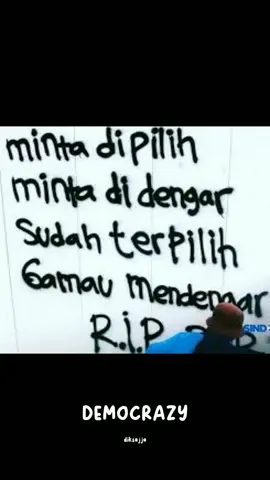 minta dipilih
minta didengar
sudah terpilih
Gamau mendengar
R.I.P
SIND
DEMOCRAZY
diksajja